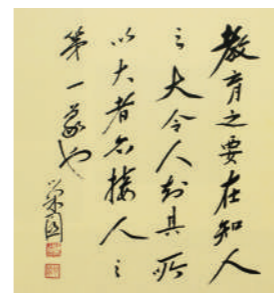 教育之要在知人
之大令人利其所
以大者名接人之
第一義也